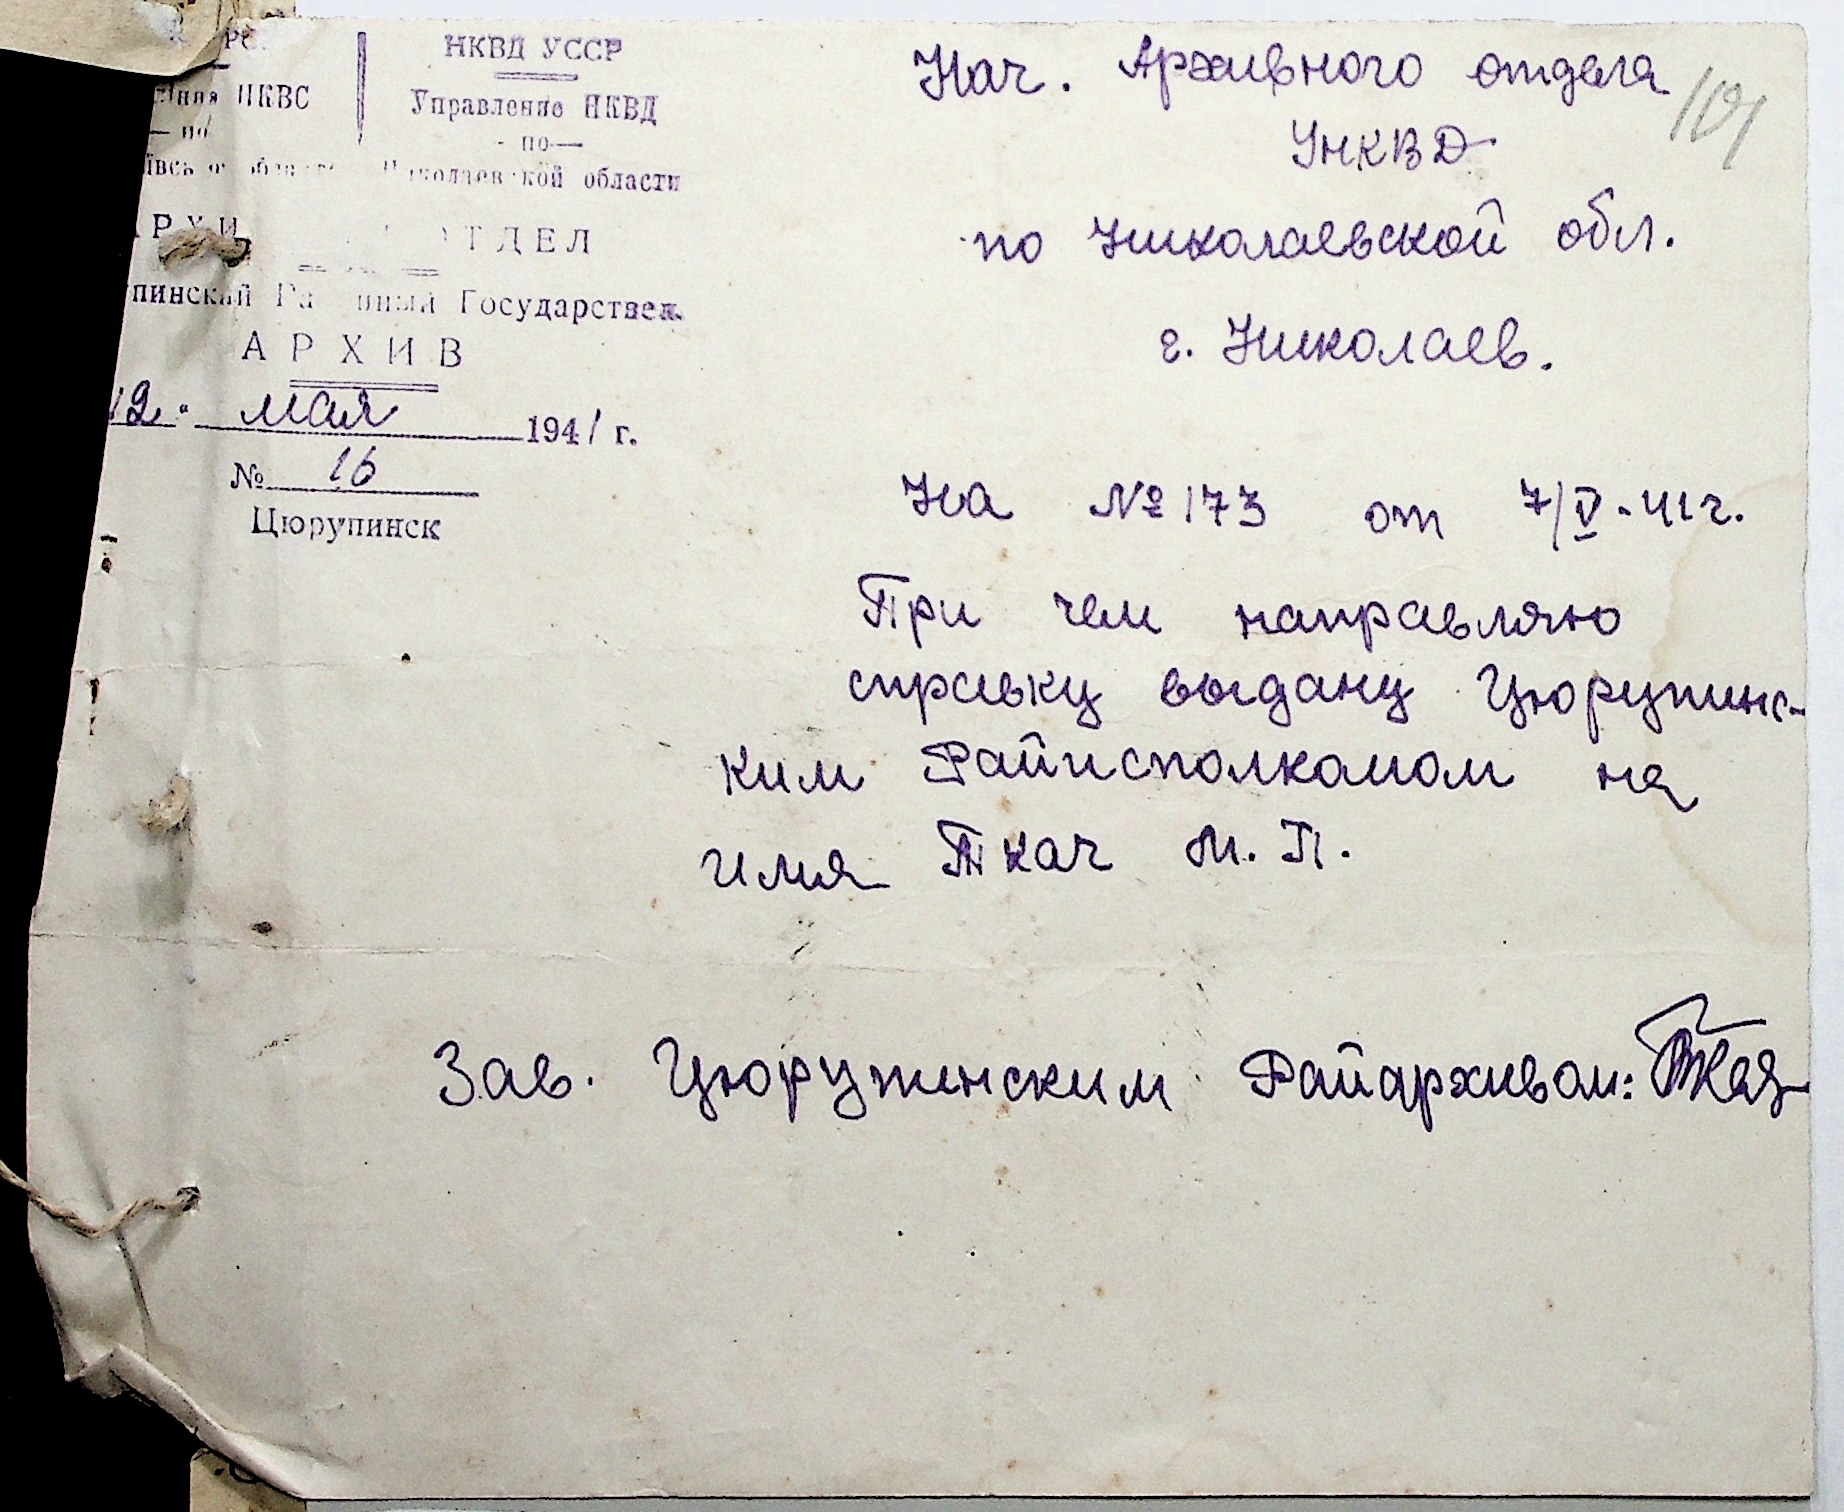 НКВД УССР
НКВС
Управление НКВД
по
— по —
Николаевской области
ОТДЕЛ
Государствен.
АРХИВ
12 " мая 1941 г.
№ 16
Цюрупинск
Нач. Архивного отдела
УНКВД
по Николаевской обл.
г. Николаев.
На № 173 от 7/V-41г.
При чем направляю
справку выдану Цюрупинс-
ким Райисполкомом на
имя Ткач М. П.
Зав. Цюрупинским Райархивом: